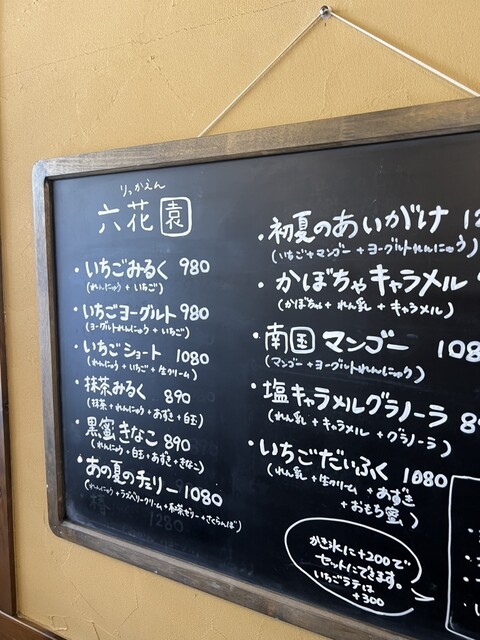 りっかえん
六花園
・いちごみるく 980
(れんにゅう+いちご)
・いちごヨーグルト 980
(ヨーグルトれんにゅう+いちご)
・いちごショート 1080
(れんにゅう+いちご+生クリーム)
・抹茶みるく 890
(抹茶+れんにゅう+あずき+白玉)
・黒蜜きなこ 890
(れんにゅう+白玉+あずき+きなこ)
・あの夏のチェリー 1080
(れんにゅう+ラズベリークリーム+和茶ゼリー+さくらんぼ)
1280
・初夏のあいがけ
(いちご+マンゴー+ヨーグルトれんにゅう)
・かぼちゃキャラメル
(かぼちゃ+れん乳+キャラメル)
・南国マンゴー 108
(マンゴー+ヨーグルトれんにゅう)
・塩キャラメルグラノーラ 8
(れん乳+キャラメル+グラノーラ)
・いちごだいふく 1080
(れん乳+生クリーム+あずき
+おもち蜜)
かき氷に+200で
セットにできます。
いちごラテは
+300